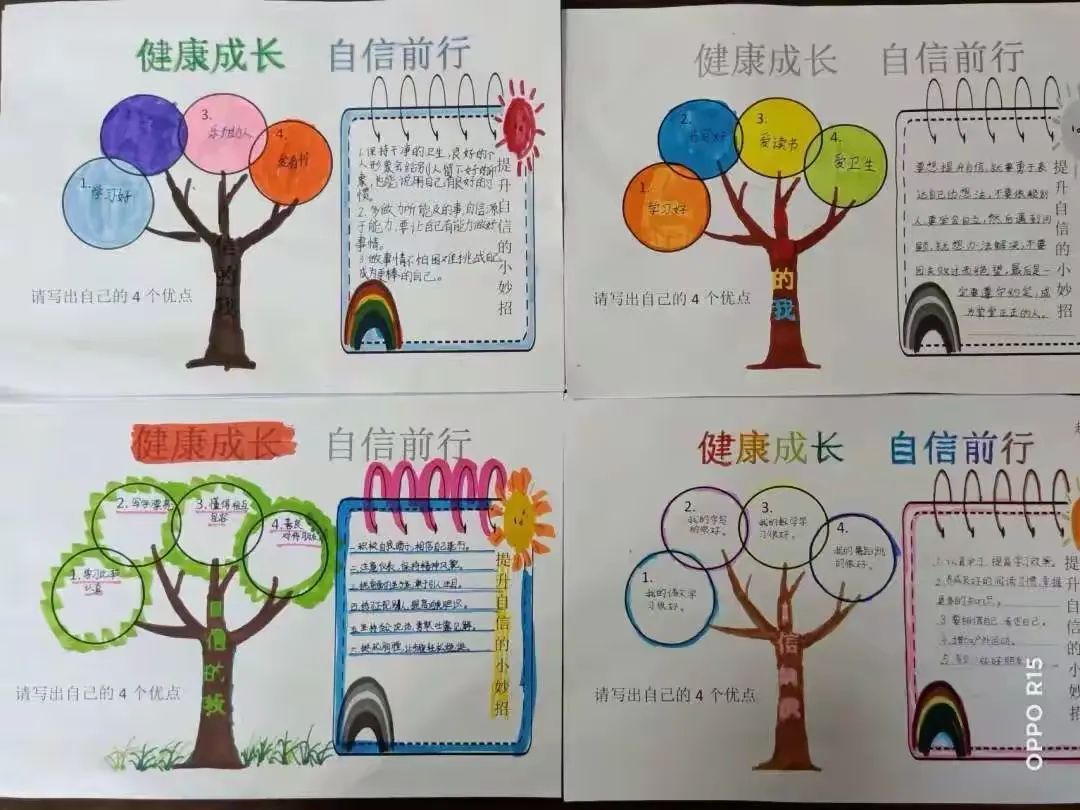 健康成长 自信前行
3.
乐于助人
4.
爱看书
1.
学习好
的我
请写出自己的 4 个优点
1.保持干净的卫生,良好的个
人形象会给别人留下好的印
象,也能说明自己有很好的习
惯。
2.多做力所能及的事,自信源
于能力,要让自己有能力做好
事情。
3.做事情不怕困难,挑战自己,
成为更棒的自己。
提升自信的小妙招
健康成长 自信前行
2.
书写好
3.
爱读书
4.
爱卫生
1.
学习好
的我
请写出自己的 4 个优点
要想提升自信,就要勇于表
达自己的想法,不要依赖别
人要学会自立,然后遇到问
题,就想办法解决,不要
定要遵守约定,成
为堂堂正正的人。
提升自信的小妙招
健康成长 自信前行
2.
3.懂得
4.
1.学习
认真
自信的我
请写出自己的 4 个优点
一.积极自我暗示,相信自己能行。
二.注意仪表,保持精神风貌。
提升自信的小妙招
健康成长 自信前行
2.
我的字写
的很好。
3.
我的数学学
习很好。
4.
我的舞蹈跳
的很好。
1.
我的语文学
习很好。
信
请写出自己的 4 个优点
1.认真学习,提高学习效率。
2.养成良好的阅读习惯,掌握
更多的知识。
3.要相信自己,肯定自己。
4.增加户外运动。
提升自信的小妙招
OPPO R15